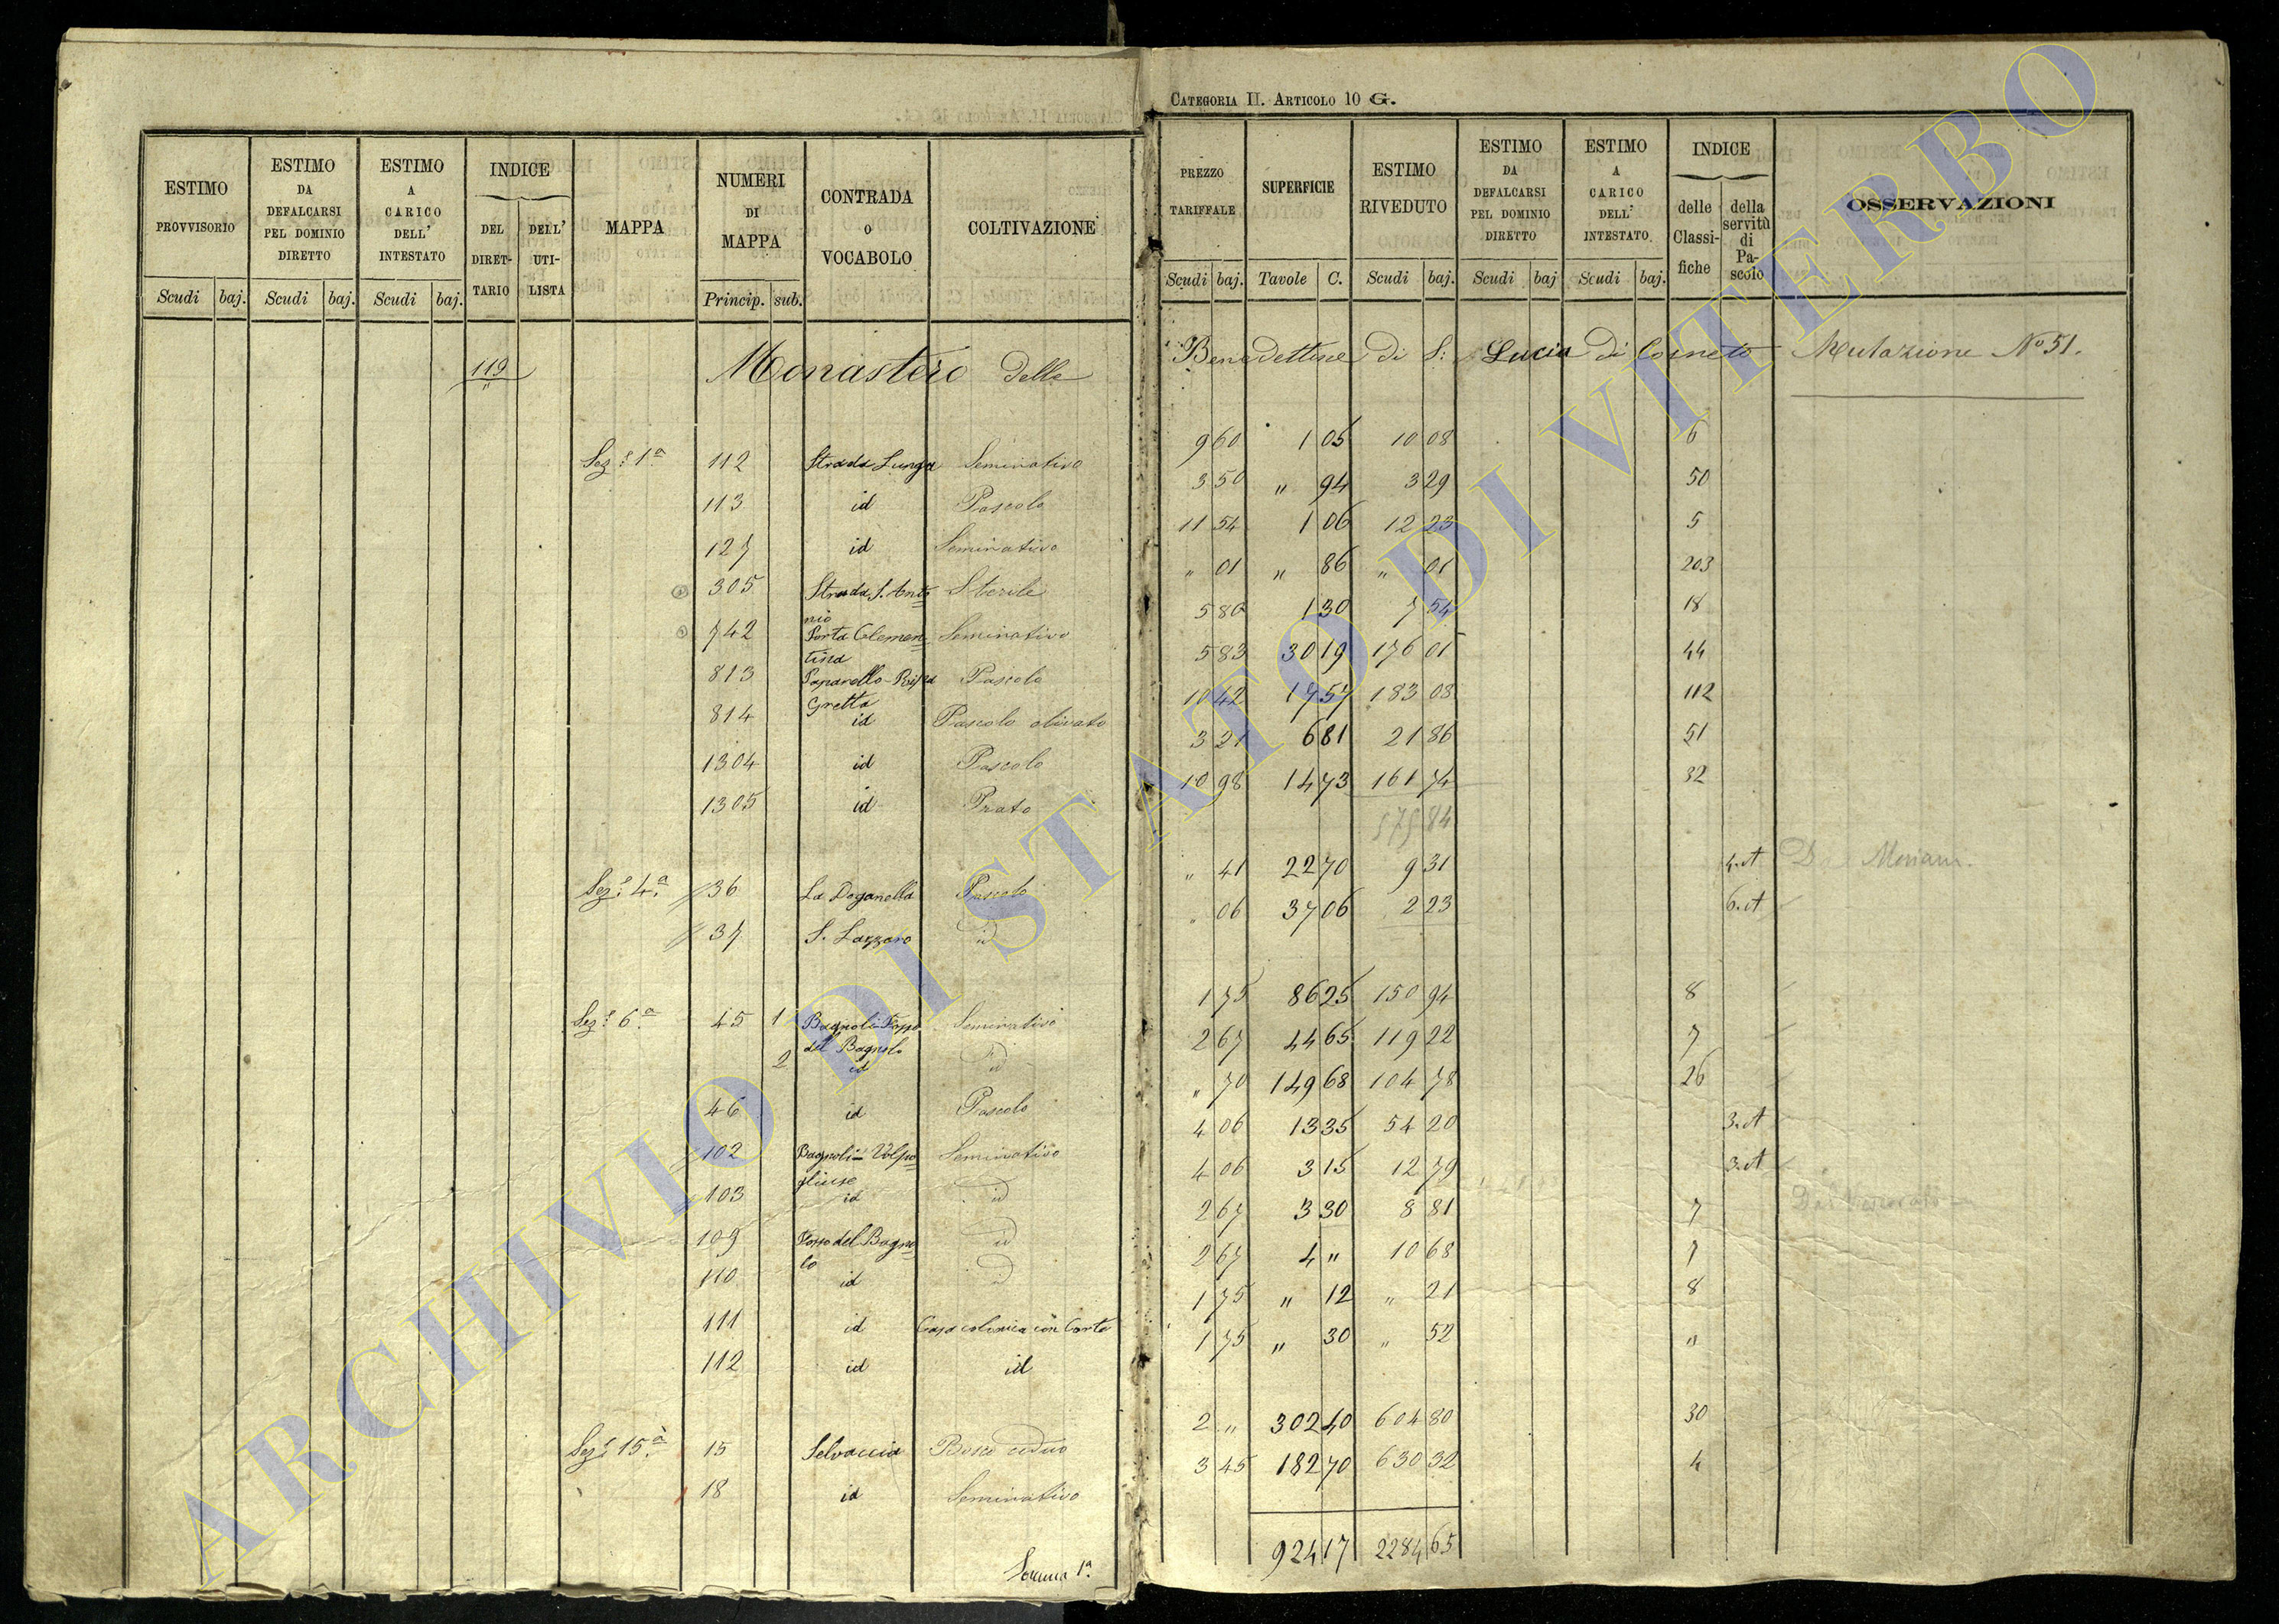 CATEGORIA II. ARTICOLO 10 G.
ESTIMO PROVVISORIO Scudi baj. | ESTIMO DA DEFALCARSI PEL DOMINIO DIRETTO Scudi baj. | ESTIMO A CARICO DELL' INTESTATO Scudi baj. | INDICE DEL DIRET-TARIO DELL' UTI-LISTA | MAPPA | NUMERI DI MAPPA Princip. sub. | CONTRADA O VOCABOLO | COLTIVAZIONE | PREZZO TARIFFALE Scudi baj. | SUPERFICIE Tavole C. | ESTIMO RIVEDUTO Scudi baj. | ESTIMO DA DEFALCARSI PEL DOMINIO DIRETTO Scudi baj | ESTIMO A CARICO DELL' INTESTATO Scudi baj. | INDICE delle Classi-fiche della servitù di Pa-scolo | OSSERVAZIONI
119 Monastero delle Benedettine di S: Lucia di Corneto Mutazione No 51.
Sez: 1a 112 Strada Lunga Seminativo 9 60 1 05 10 08 6
113 id Pascolo 3 50 " 94 3 29 50
127 id Seminativo 11 54 1 06 12 23 5
305 Strada S. Anto= nio Sterile " 01 " 86 " 01 203
742 Porta Clemen= tina Seminativo 5 80 1 30 7 54 18
813 Paparello-Ripa Gretta Pascolo 5 83 30 19 176 01 44
814 id Pascolo olivato 10 42 17 57 183 08 112
1304 id Pascolo 3 21 6 81 21 86 51
1305 id Prato 10 98 14 73 161 74 32
575 84
Sez: 4a 36 La Doganella Pascolo " 41 22 70 9 31 4.A
37 S. Lazzaro id " 06 37 06 2 23 6.A
Sez: 6a 45 1 Bagnoli-Fosso del Bagnolo Seminativo 1 75 86 25 150 94 8
2 id id 2 67 44 65 119 22 7
46 id Pascolo " 70 149 68 104 78 26
102 Bagnoli-Volpo= Seminativo 4 06 13 35 54 20 3.A
103 id id 4 06 3 15 12 79 3.A
109 Fosso del Bagno= lo id 2 67 3 30 8 81 7
110 id id 2 67 4 " 10 68 7
111 id Casa colonica con Corte 1 75 " 12 " 21 8
112 id id 1 75 " 30 " 52 "
Sez: 15a 15 Selvaccia Bosco ceduo 2 " 302 40 604 80 30
18 id Seminativo 3 45 182 70 630 32 4
Somma 1a 924 17 2284 65
ARCHIVIO DI STATO DI VITERBO